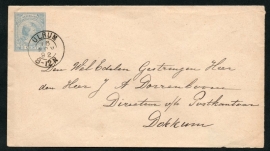 ULRUM
8-12N
Den Wel Edelen Gestrengen Heer
den Heer J A Dorrenboom
Directeur o/h Postkantoor
Dokkum